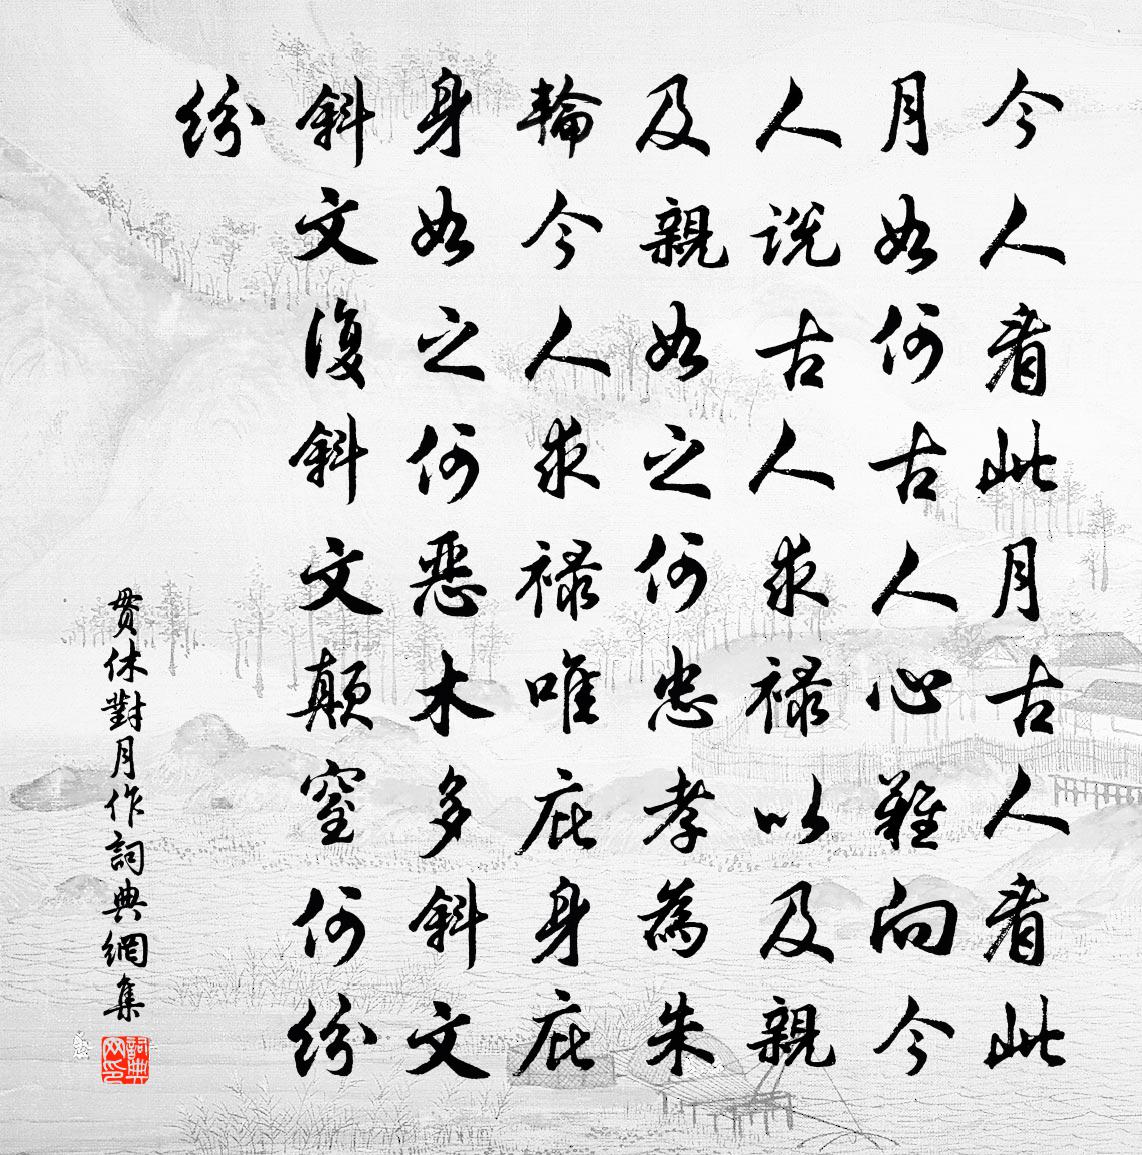 今人看此月古人看此
月如何古人心難向今
人說古人求禄以及親
及親如之何忠孝為朱
輪今人求禄唯庇身庇
身如之何恶木多斜文
斜文復斜文顛窒何紛
紛
貫休對月作詞典網集
詞典网印